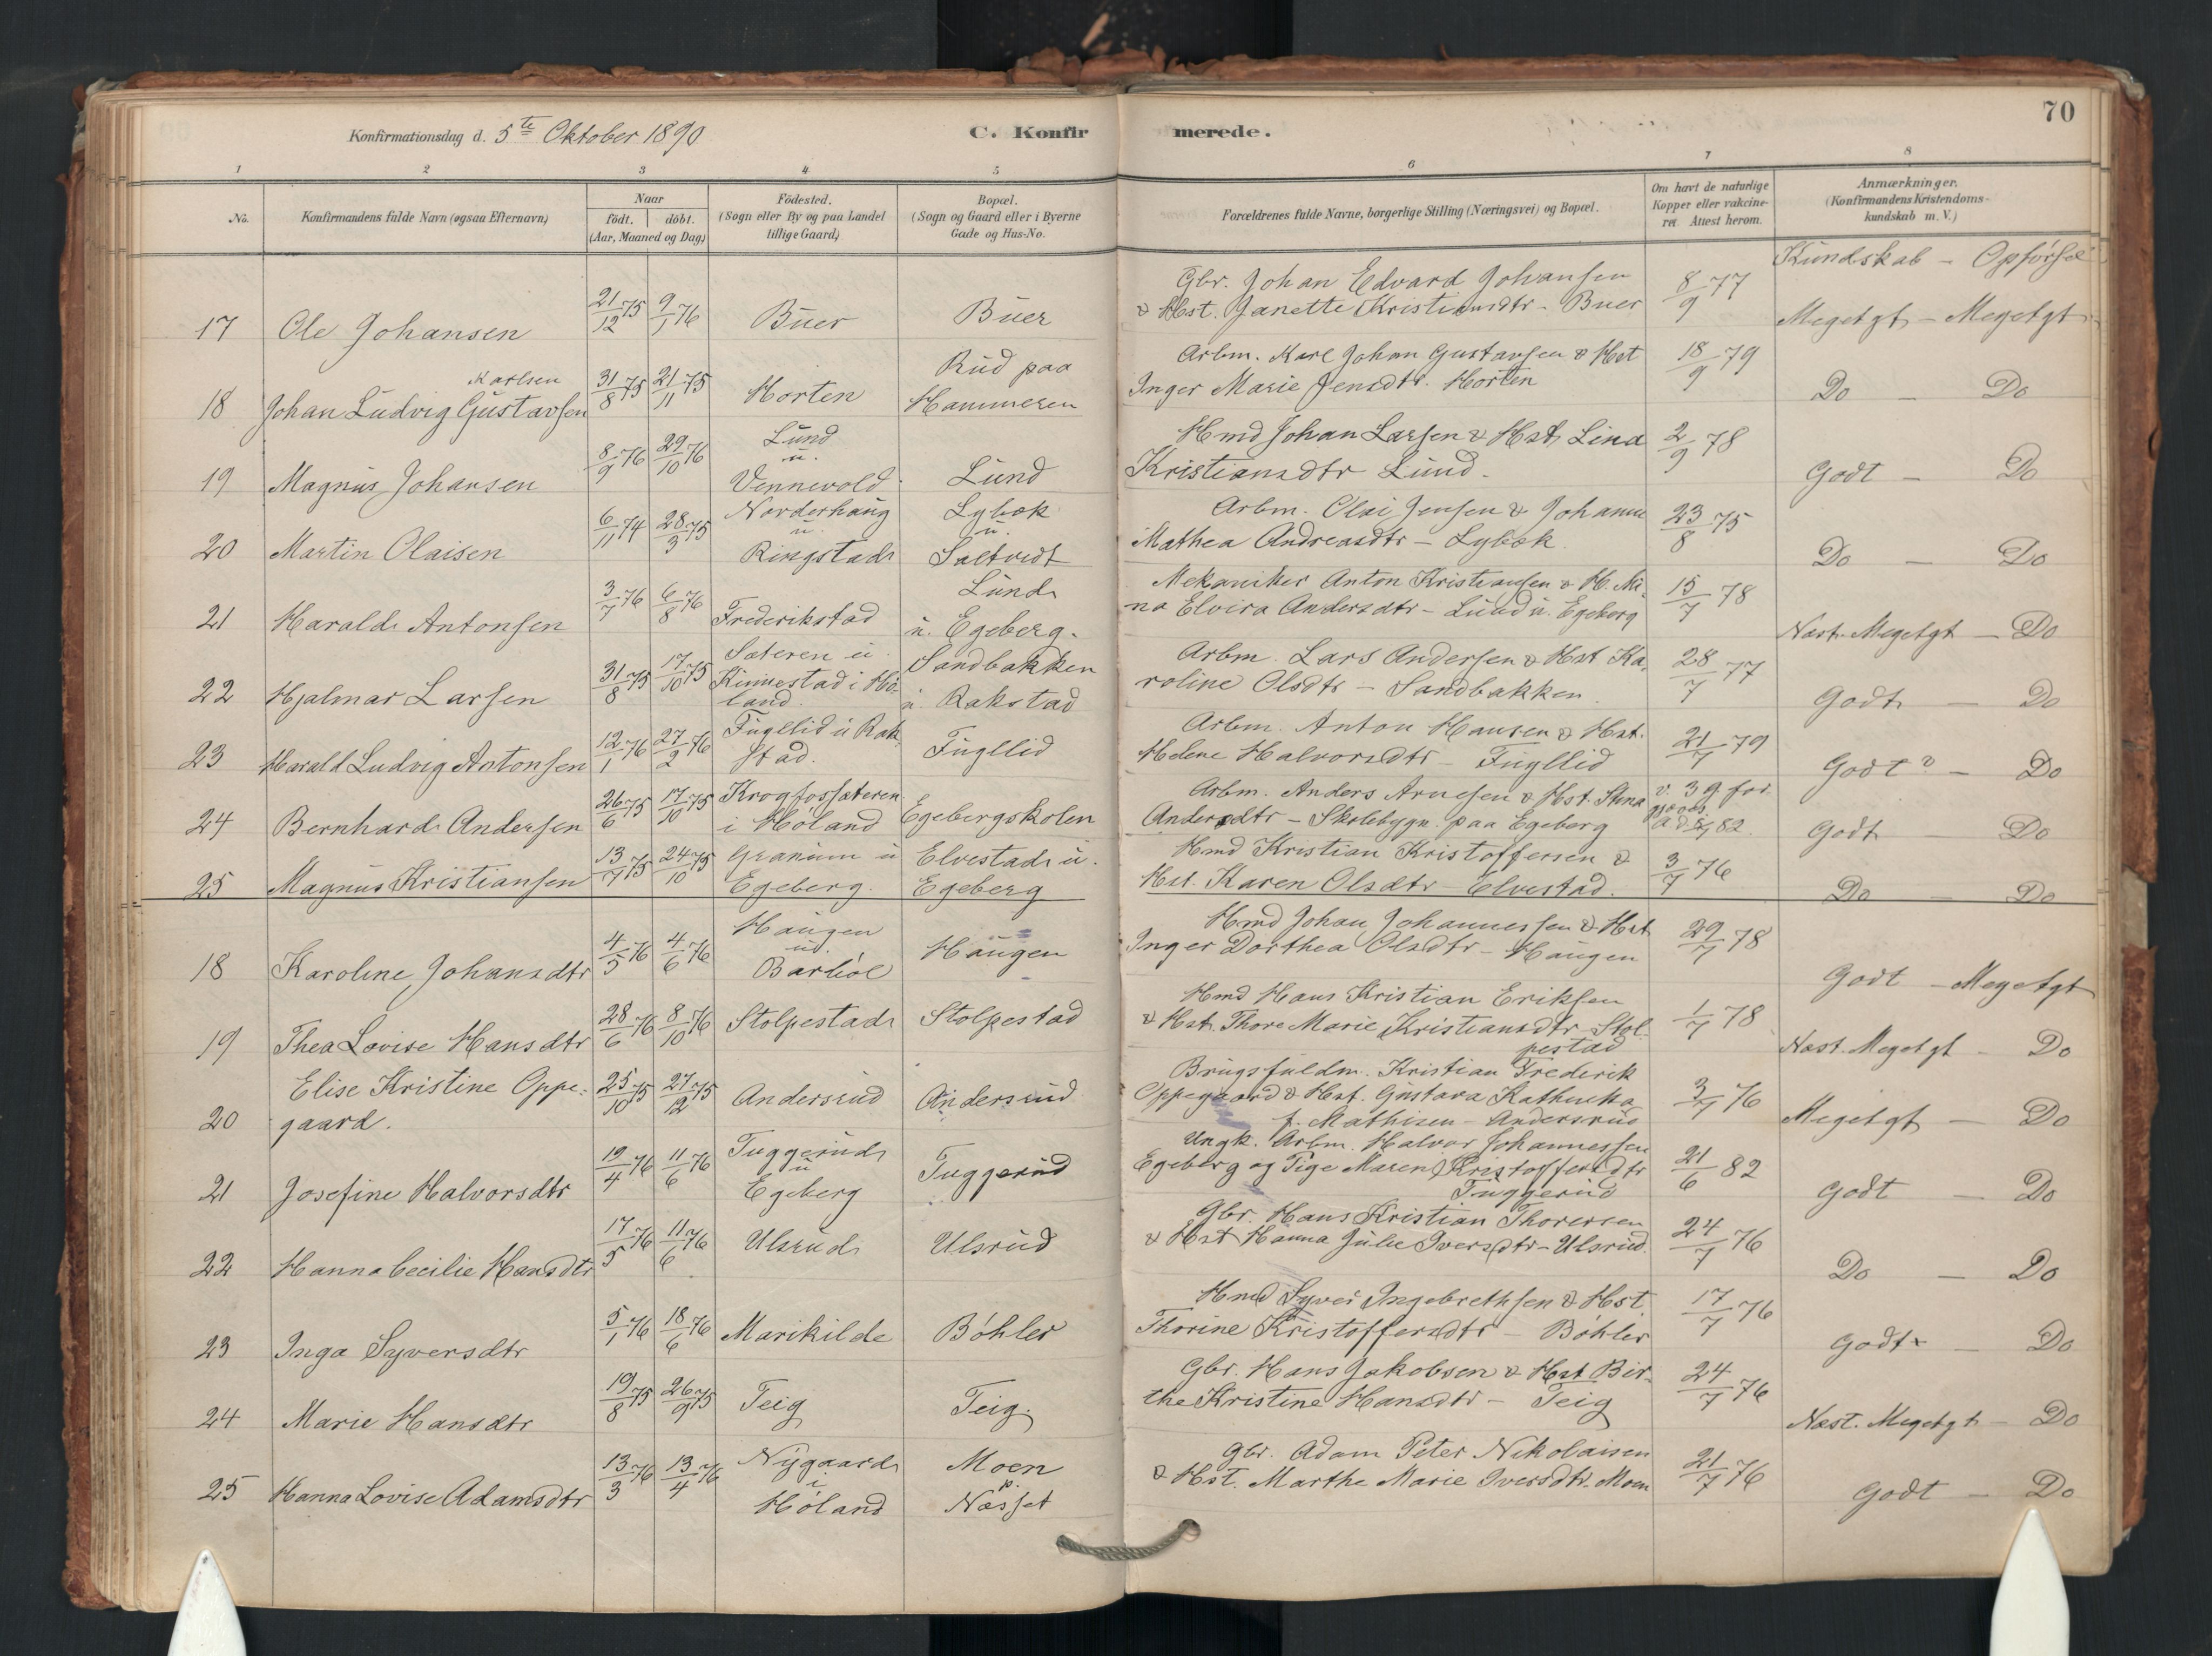 70
Konfirmationsdag d. 5te Oktober 1890
C. Konfirmerede.
1 2 3 4 5 6 7 8
No. Konfirmandens fulde Navn (ogsaa Efternavn) Naar født. døbt. (Aar, Maaned og Dag) Fødested. (Sogn eller By og paa Landet tillige Gaard) Bopæl. (Sogn og Gaard eller i Byerne Gade og Hus-No. Forældrenes fulde Navne, borgerlige Stilling (Næringsvei) og Bopæl. Om havt de naturlige Kopper eller vakcineret. Attest herom. Anmærkninger. (Konfirmandens Kristendomskundskab m. V.)
Kundskab - Opførsel
17 Ole Johansen 21/12 75 9/1 76 Buer Buer Gbr. Johan Edvard Johansen & Hst. Janette Kristiansdtr - Buer 8/9 77 Megetgt - Megetgt
18 Johan Ludvig Karlsen Gustavsen 31/8 75 21/11 75 Horten Rud paa Hammeren Arbm. Karl Johan Gustavsen & Hst Inger Marie Jensdtr. Horten 18/9 79 Do - Do
19 Magnus Johansen 8/9 76 29/10 76 Lund u. Vennevold Lund Hmd Johan Larsen & Hst Lina Kristiansdtr Lund. 2/9 78 Godt - Do
20 Martin Olaisen 6/11 74 28/3 75 Norderhaug u. Ringstad Lybæk u. Saltvedt Arbm. Olai Jensen & Johanne Mathea Andreasdtr - Lybæk 23/8 75 Do - Do
21 Harald Antonsen 3/7 76 6/8 76 Frederikstad Lund u. Egeberg. Mekaniker Anton Kristiansen & H. Mina Elvira Andersdtr - Lund u. Egeberg 15/7 78 Næst. Megetgt - Do
22 Hjalmar Larsen 31/8 75 17/10 75 Sæteren u. Kinnestad i Høland. Sandbakken u. Rakstad Arbm. Lars Andersen & Hst Karoline Olsdtr - Sandbakken 28/7 77 Godt - Do
23 Harald Ludvig Antonsen 12/1 76 27/2 76 Fugllid u Rakstad. Fugllid Arbm. Anton Hansen & Hst. Helene Halvorsdtr - Fugllid 21/7 79 Godt? - Do
24 Bernhard Andersen 26/6 75 17/10 75 Krogfossæteren i Høland Egebergskolen Arbm. Anders Arnesen & Hst. Stina Andersdtr - Skolebygn. paa Egeberg v. 3 g. forgjæves 82. Godt - Do
25 Magnus Kristiansen 13/7 75 24/10 75 Granum u Egeberg. Elvestad u. Egeberg Hmd Kristian Kristoffersen & Hst. Karen Olsdtr - Elvestad. 3/7 76 Do - Do
18 Karoline Johansdtr 4/5 76 4/6 76 Haugen ud. Barbøl Haugen Hmd Johan Johannessen & Hst Inger Dorthea Olsdtr - Haugen 29/7 78 Godt - Megetgt
19 Thea Lovise Hansdtr 28/6 76 8/10 76 Stolpestad Stolpestad Hmd Hans Kristian Eriksen & Hst. Thore Marie Kristiansdtr Stolpestad 1/7 78 Næst. Megetgt - Do
20 Elise Kristine Oppegaard. 25/10 75 27/12 75 Andersrud Andersrud Brugsfuldm. Kristian Frederik Oppegaard & Hst. Gustava Kathinka f. Mathisen - Andersrud 3/7 76 Megetgt - Do
21 Josefine Halvorsdtr 19/4 76 11/6 76 Tuggerud u Egeberg Tuggerud Ungk. Arbm. Halvor Johannessen Egeberg og Pige Maren Kristoffersdtr Tuggerud 21/6 82 Godt - Do
22 Hanna Cecilie Hansdtr 17/5 76 11/6 76 Ulsrud Ulsrud Gbr. Hans Kristian Thoresen & Hst Hanna Julie Iversdtr - Ulsrud. 24/7 76 Do - Do
23 Inga Syversdtr 5/1 76 18/6 76 Marikilde Bøhler Hmd Syver Ingebrethsen & Hst. Thorine Kristoffersdtr - Bøhler 17/7 76 Godt - Do
24 Marie Hansdtr 19/8 75 26/9 75 Teig Teig. Gbr. Hans Jakobsen & Hst Birthe Kristine Hansdtr - Teig 24/7 76 Næst. Megetgt - Do
25 Hanna Lovise Adamsdtr 13/3 76 13/4 76 Nygaard i Høland Moen p. Næsset Gbr. Adam Peter Nikolaisen & Hst. Marthe Marie Iversdtr. Moen 21/7 76 Godt - Do